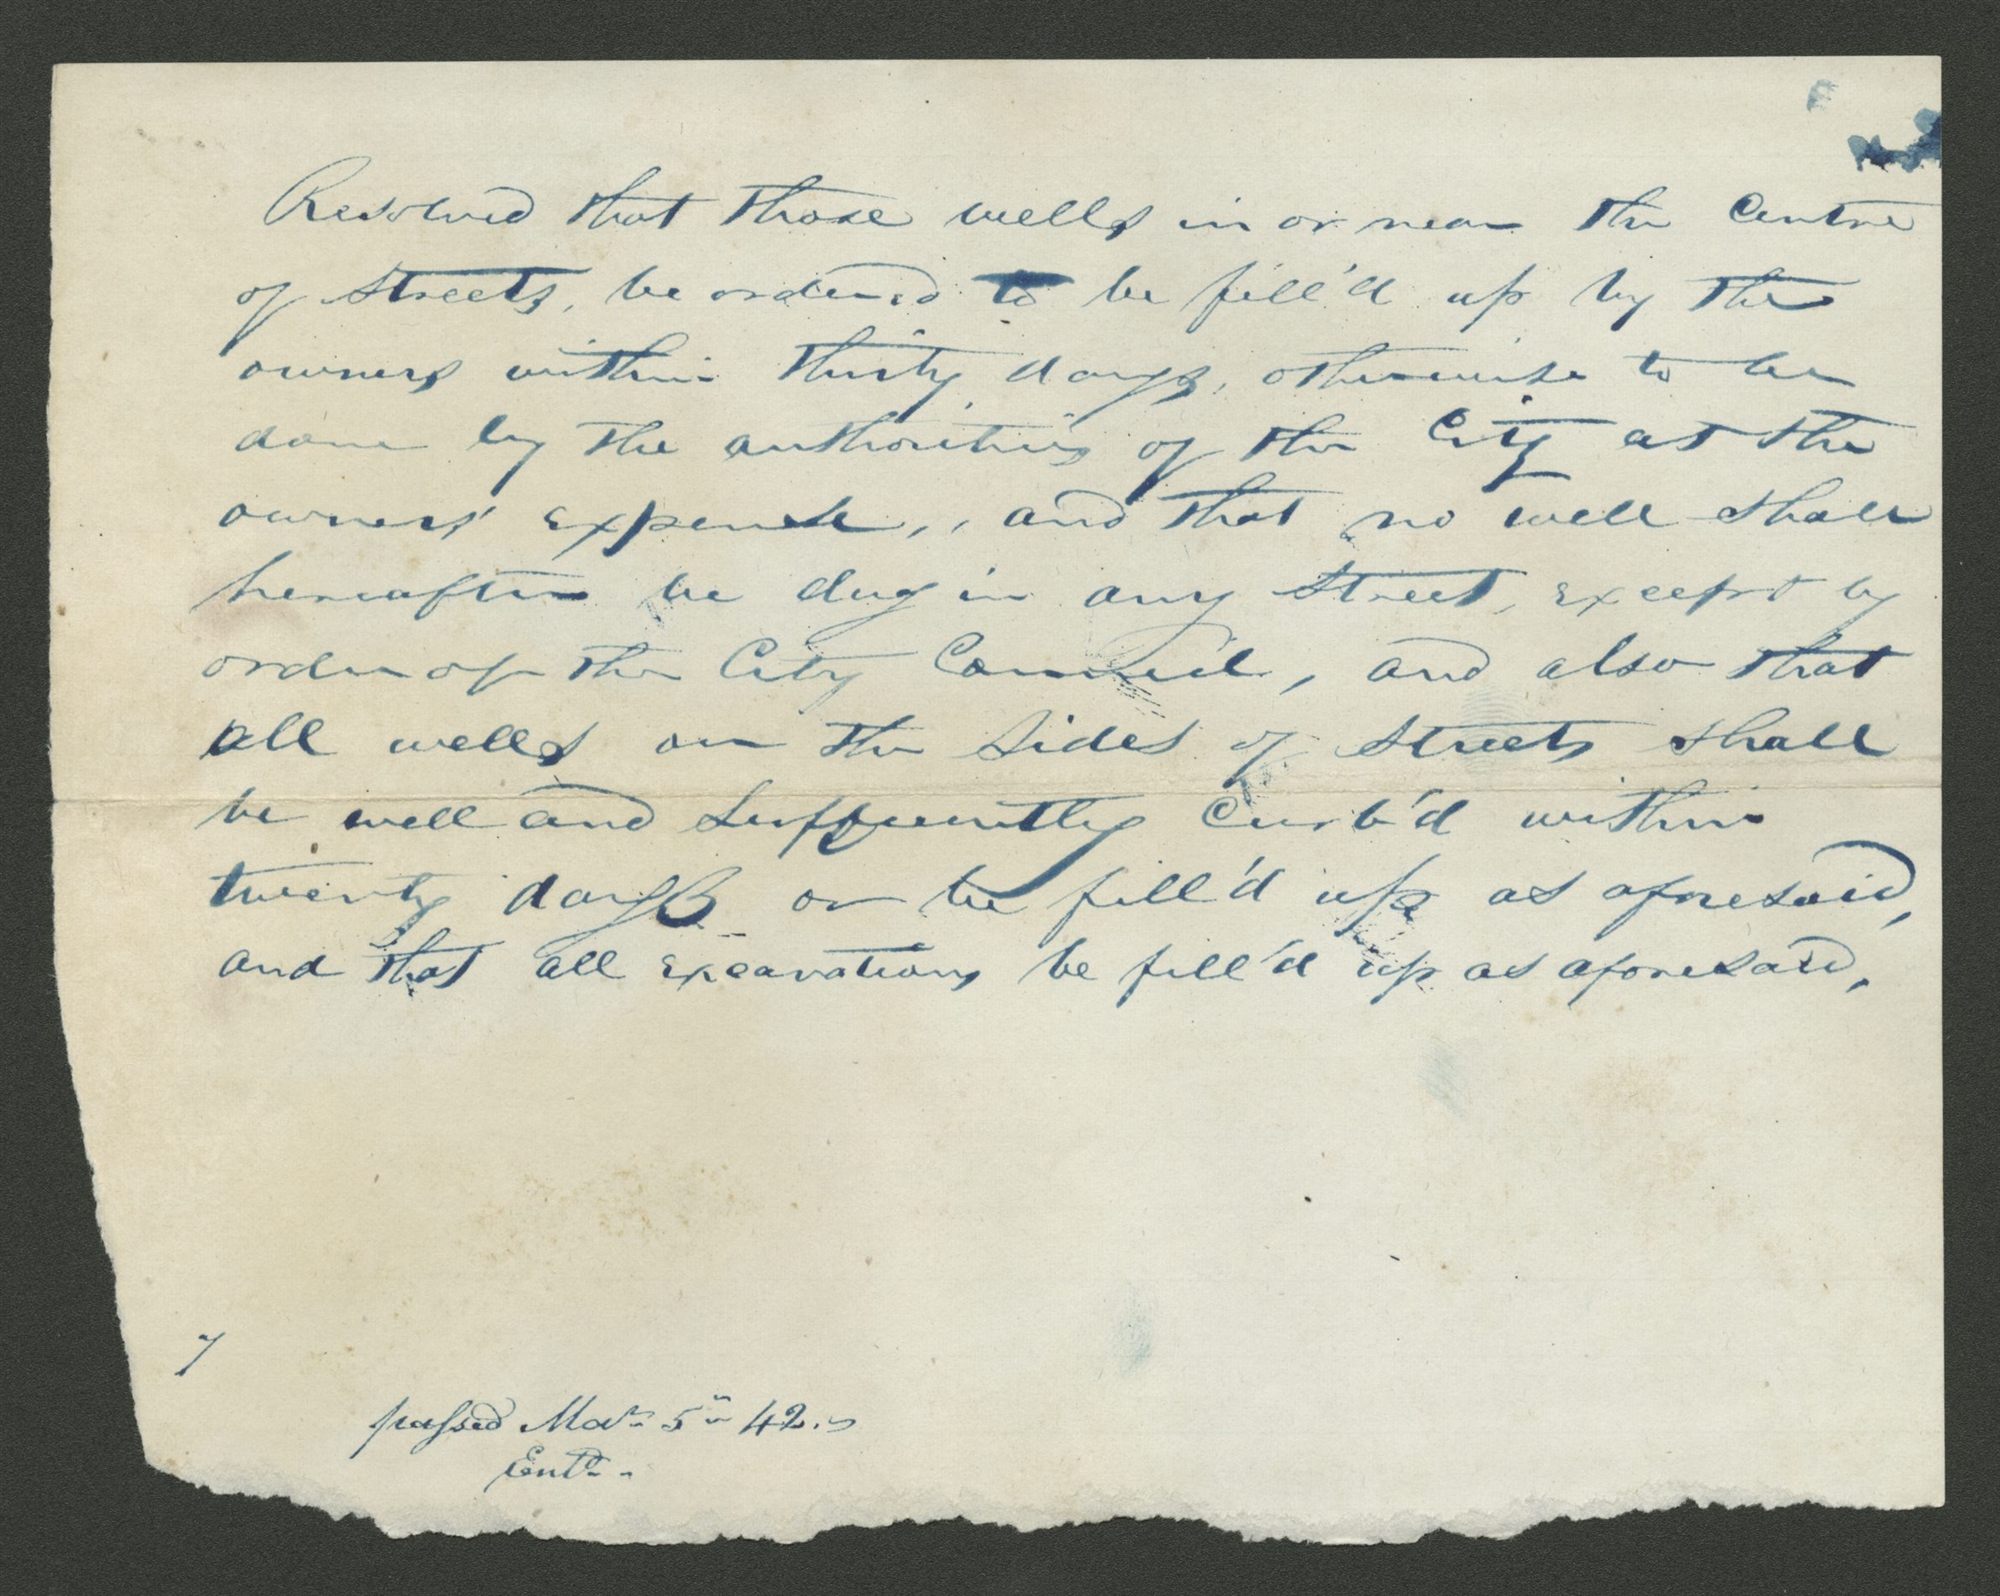 Resolved that those wells in or near the Centre
of Streets, be ordered to be fill'd up by the
owners within thirty days, otherwise to be
done by the authorities of the City at the
owners' expense, and that no well shall
hereafter be dug in any Street, except by
order of the City Council, and also that
all wells on the Sides of Streets shall
be well and Sufficiently Curb'd within
twenty days or be fill'd up as aforesaid,
and that all excavations be fill'd up as aforesaid,
7
passed Mar 5th 42.
Entd.